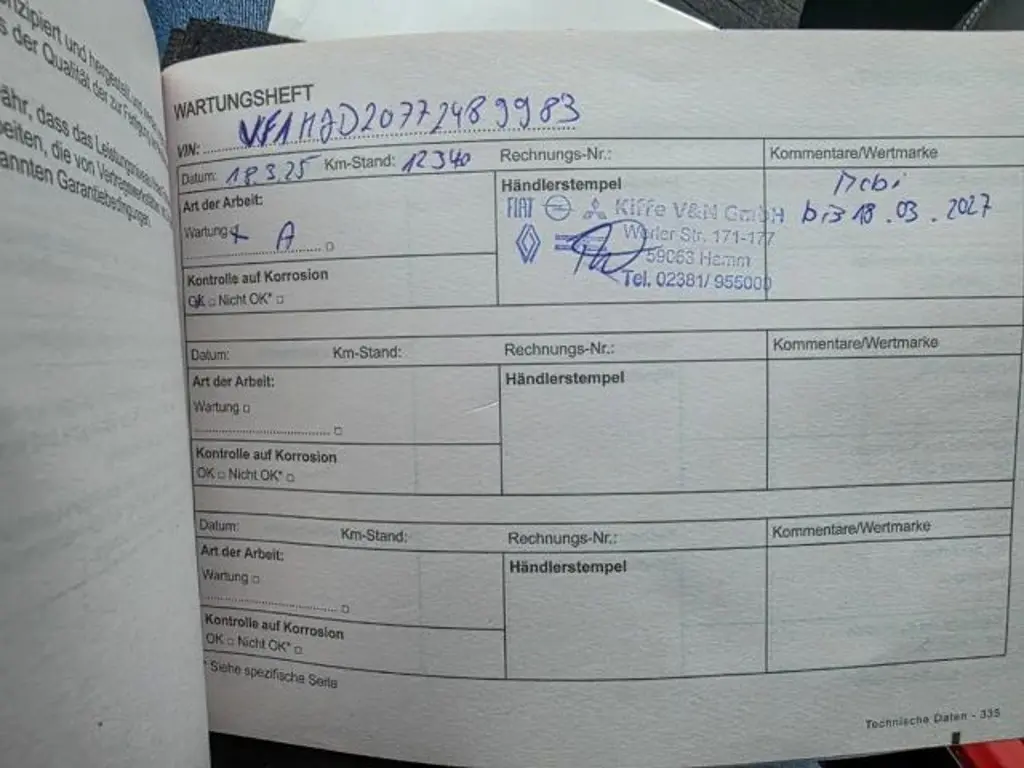 nzipiert und hergestellt und
s der Qualität der zur Fertigung
ähr, dass das Leistungsniveau
eiten, die von Vertragswerkstätten
annten Garantiebedingungen.
WARTUNGSHEFT
VIN: VF1MJD20772489983
Datum: 18.3.25 Km-Stand: 12340 Rechnungs-Nr.: Kommentare/Wertmarke
Art der Arbeit:
Wartung x A
Kontrolle auf Korrosion
OK □ Nicht OK* □
Händlerstempel
FIAT Kiffe V&N GmbH
Werler Str. 171-177
59063 Hamm
Tel. 02381/955000
Mobi
bis 18.03.2027
Datum: Km-Stand: Rechnungs-Nr.: Kommentare/Wertmarke
Art der Arbeit:
Wartung □
Kontrolle auf Korrosion
OK □ Nicht OK* □
Händlerstempel
Datum: Km-Stand: Rechnungs-Nr.: Kommentare/Wertmarke
Art der Arbeit:
Wartung □
Kontrolle auf Korrosion
OK □ Nicht OK* □
Händlerstempel
* Siehe spezifische Seite
Technische Daten - 335